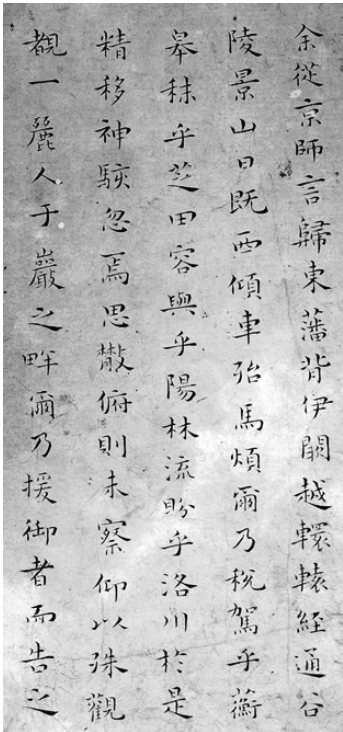 余從京師言歸東藩背伊闕越轘轅經通谷
陵景山日既西傾車殆馬煩爾乃稅駕乎蘅
皋秣乎芝田容與乎陽林流盼乎洛川於是
精移神駭忽焉思散俯則未察仰以殊觀
覩一麗人于巖之畔爾乃援御者而告之